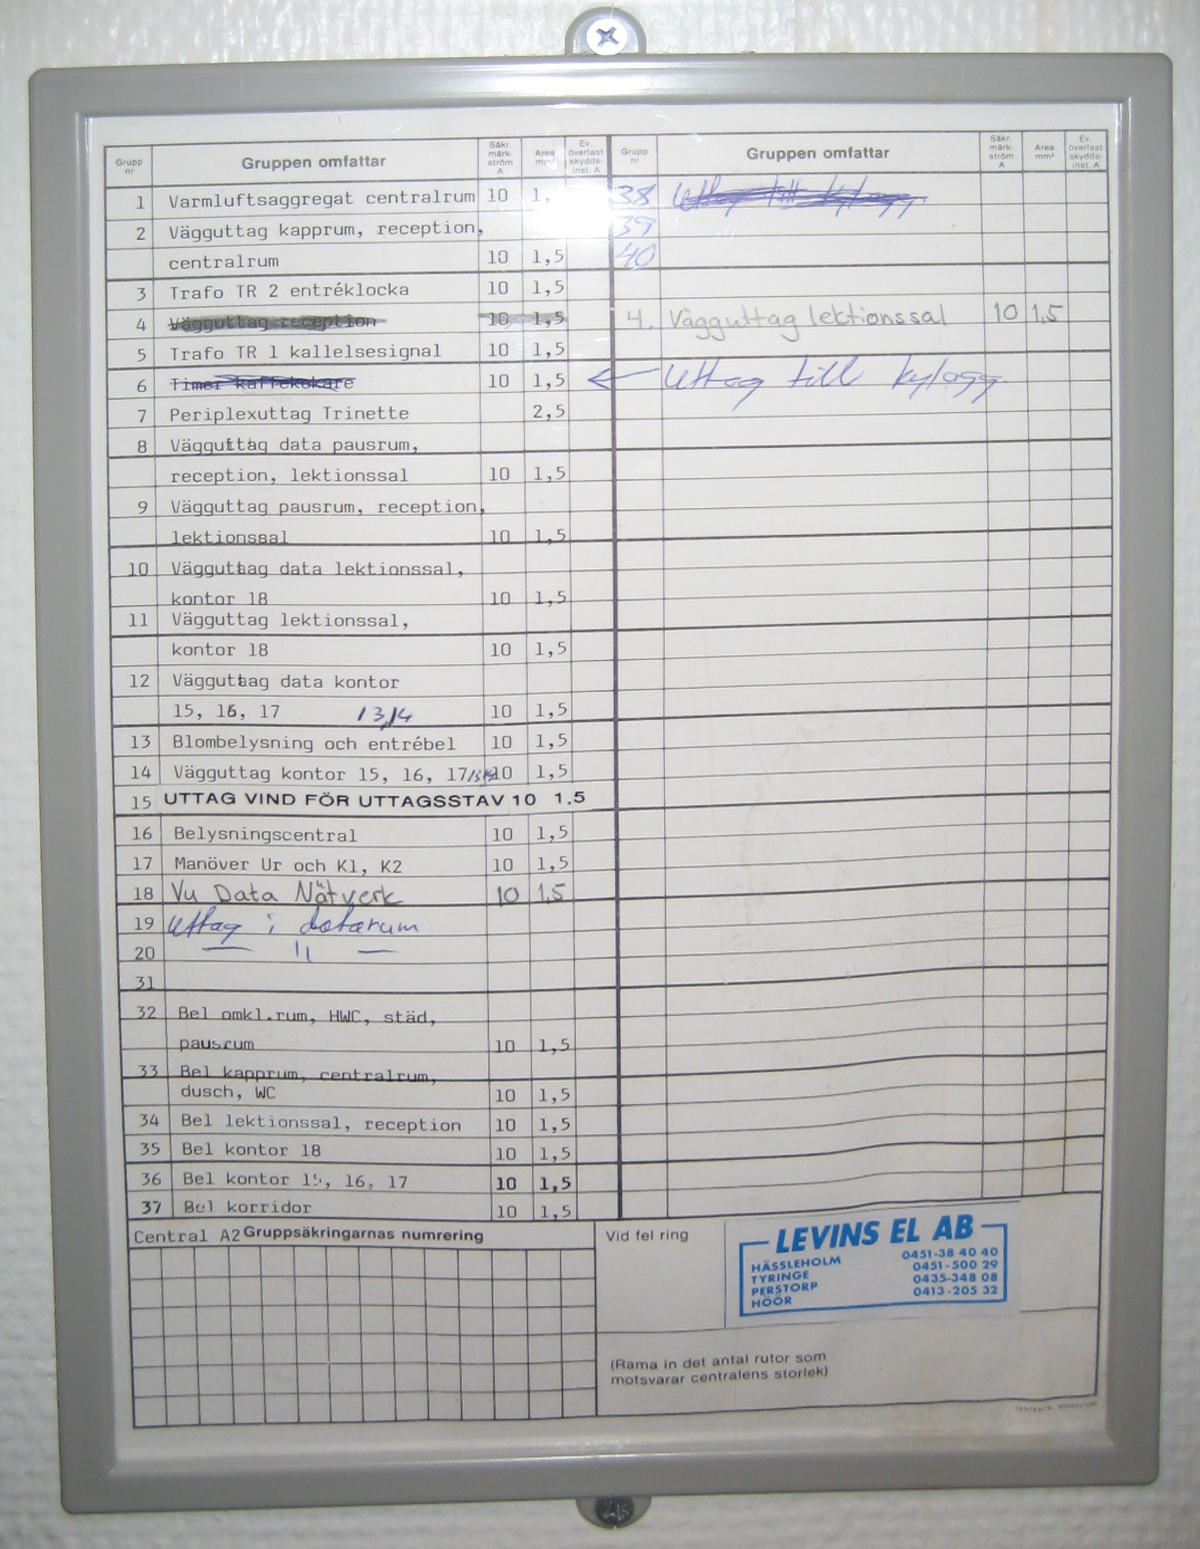 Grupp nr Gruppen omfattar Säkr. märk- ström A Area mm² Ev. överlast skydds- inst. A
1 Varmluftsaggregat centralrum 10 1,
2 Vägguttag kapprum, reception,
centralrum 10 1,5
3 Trafo TR 2 entréklocka 10 1,5
4 Vägguttag reception 10 1,5
5 Trafo TR 1 kallelsesignal 10 1,5
6 Timer kaffekokare 10 1,5
7 Periplexuttag Trinette 2,5
8 Vägguttag data pausrum,
reception, lektionssal 10 1,5
9 Vägguttag pausrum, reception,
lektionssal 10 1,5
10 Vägguttag data lektionssal,
kontor 18 10 1,5
11 Vägguttag lektionssal,
kontor 18 10 1,5
12 Vägguttag data kontor
15, 16, 17 13,14 10 1,5
13 Blombelysning och entrébel 10 1,5
14 Vägguttag kontor 15, 16, 17 10 1,5
15 UTTAG VIND FÖR UTTAGSSTAV 10 1.5
16 Belysningscentral 10 1,5
17 Manöver Ur och K1, K2 10 1,5
18 Vu Data Nätverk 10 1,5
19 Uttag i datarum
20 — 11 —
31
32 Bel omkl.rum, HWC, städ,
pausrum 10 1,5
33 Bel kapprum, centralrum,
dusch, WC 10 1,5
34 Bel lektionssal, reception 10 1,5
35 Bel kontor 18 10 1,5
36 Bel kontor 15, 16, 17 10 1,5
37 Bel korridor 10 1,5
Grupp nr Gruppen omfattar Säkr. märk- ström A Area mm² Ev. överlast skydds- inst. A
38 Uttag till kylagg
39
40
4. Vägguttag lektionssal 10 1,5
← Uttag till kylagg.
Central A2 Gruppsäkringarnas numrering
Vid fel ring
LEVINS EL AB
HÄSSLEHOLM 0451-38 40 40
TYRINGE 0451-500 29
PERSTORP 0435-348 08
HÖÖR 0413-205 32
(Rama in det antal rutor som
motsvarar centralens storlek)